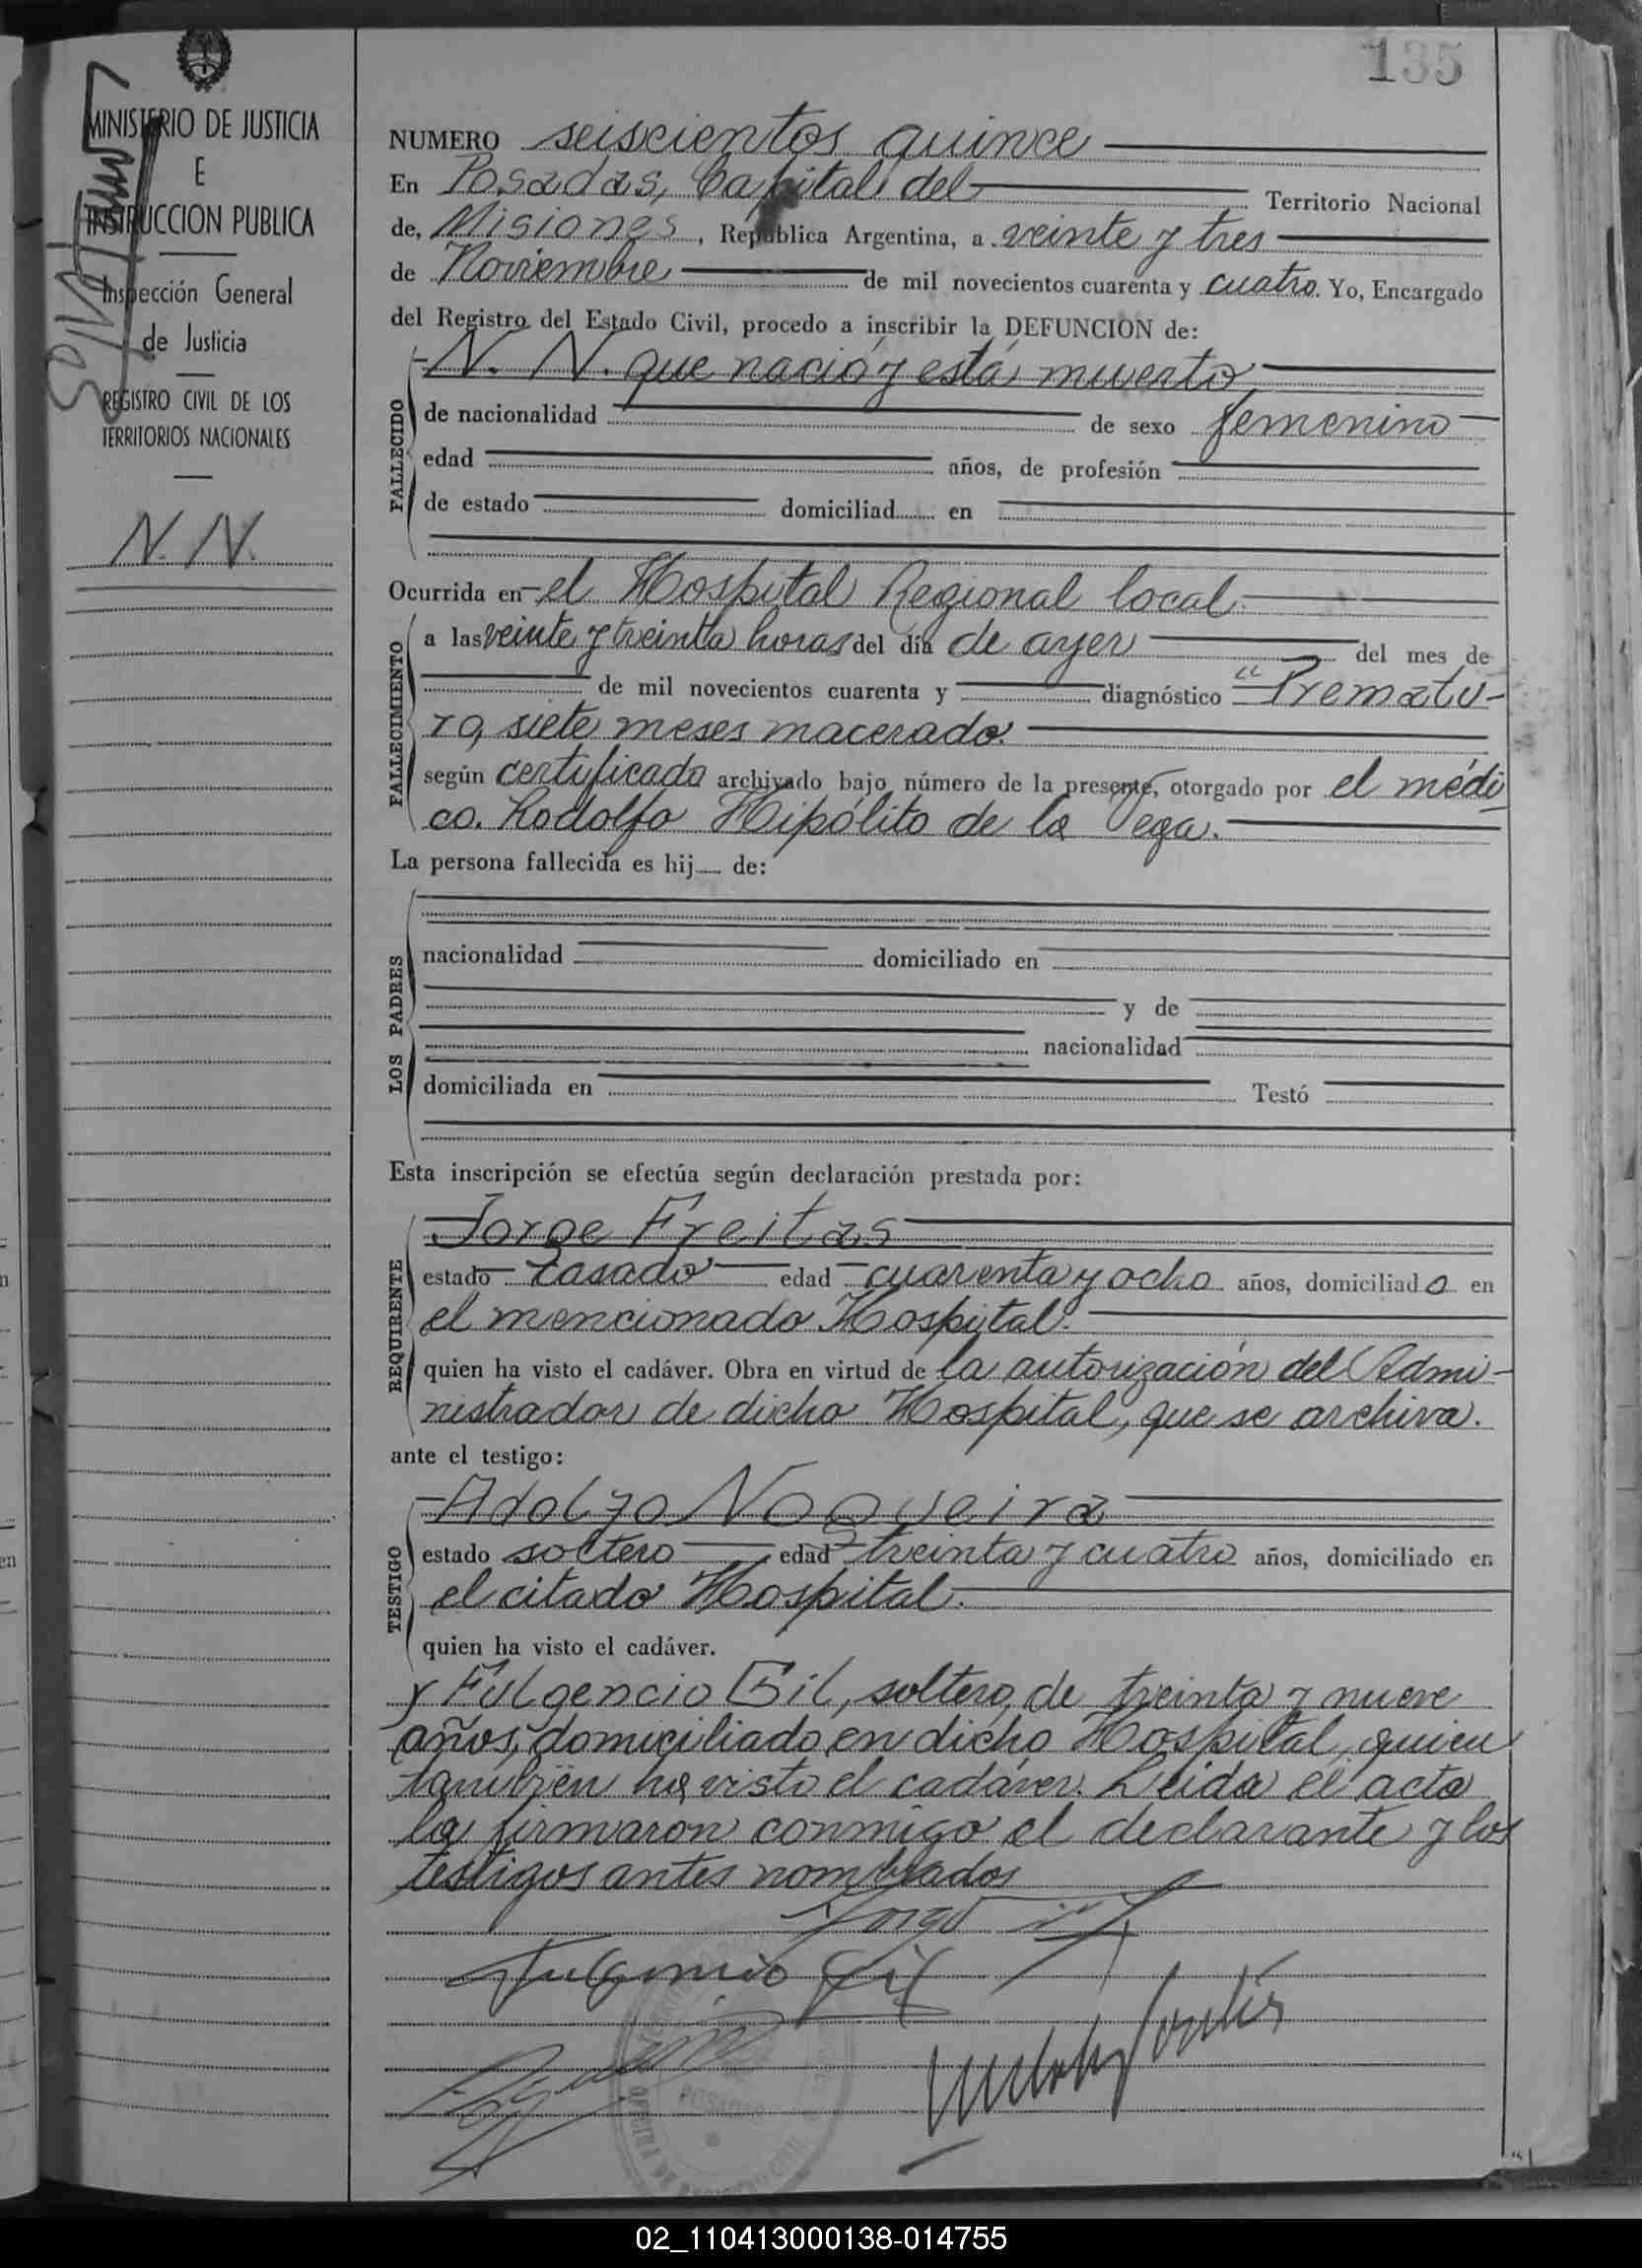 135
MINISTERIO DE JUSTICIA
E
INSTRUCCION PUBLICA
Inspección General
de Justicia
REGISTRO CIVIL DE LOS
TERRITORIOS NACIONALES
N. N.
NUMERO seiscientos quince
En Posadas, Capital del Territorio Nacional
de, Misiones, República Argentina, a veinte y tres
de Noviembre de mil novecientos cuarenta y cuatro. Yo, Encargado
del Registro del Estado Civil, procedo a inscribir la DEFUNCION de:
FALLECIDO
N. N. que nació y está muerto
de nacionalidad de sexo femenino
edad años, de profesión
de estado domiciliad en
Ocurrida en el Hospital Regional local.
FALLECIMIENTO
a las veinte y treinta horas del día de ayer del mes de
de mil novecientos cuarenta y diagnóstico "Prematu-
ro, siete meses macerado.
según certificado archivado bajo número de la presente, otorgado por el médi
co. Rodolfo Hipólito de la Vega.
La persona fallecida es hij de:
LOS PADRES
nacionalidad domiciliado en
y de
nacionalidad
domiciliada en Testó
Esta inscripción se efectúa según declaración prestada por:
REQUIRENTE
Jorge Freitas
estado Casado edad cuarenta y ocho años, domiciliado en
el mencionado Hospital.
quien ha visto el cadáver. Obra en virtud de la autorización del Admi-
nistrador de dicho Hospital, que se archiva.
ante el testigo:
TESTIGO
Adolfo Nogueira
estado soltero edad treinta y cuatro años, domiciliado en
el citado Hospital.
quien ha visto el cadáver.
y Fulgencio Gil, soltero, de treinta y nueve
años, domiciliado en dicho Hospital, quien
también ha visto el cadáver. Leida el acta
la firmaron conmigo el declarante y los
testigos antes nombrados
Jorge
Fulgencio Gil
POSADAS
02_110413000138-014755